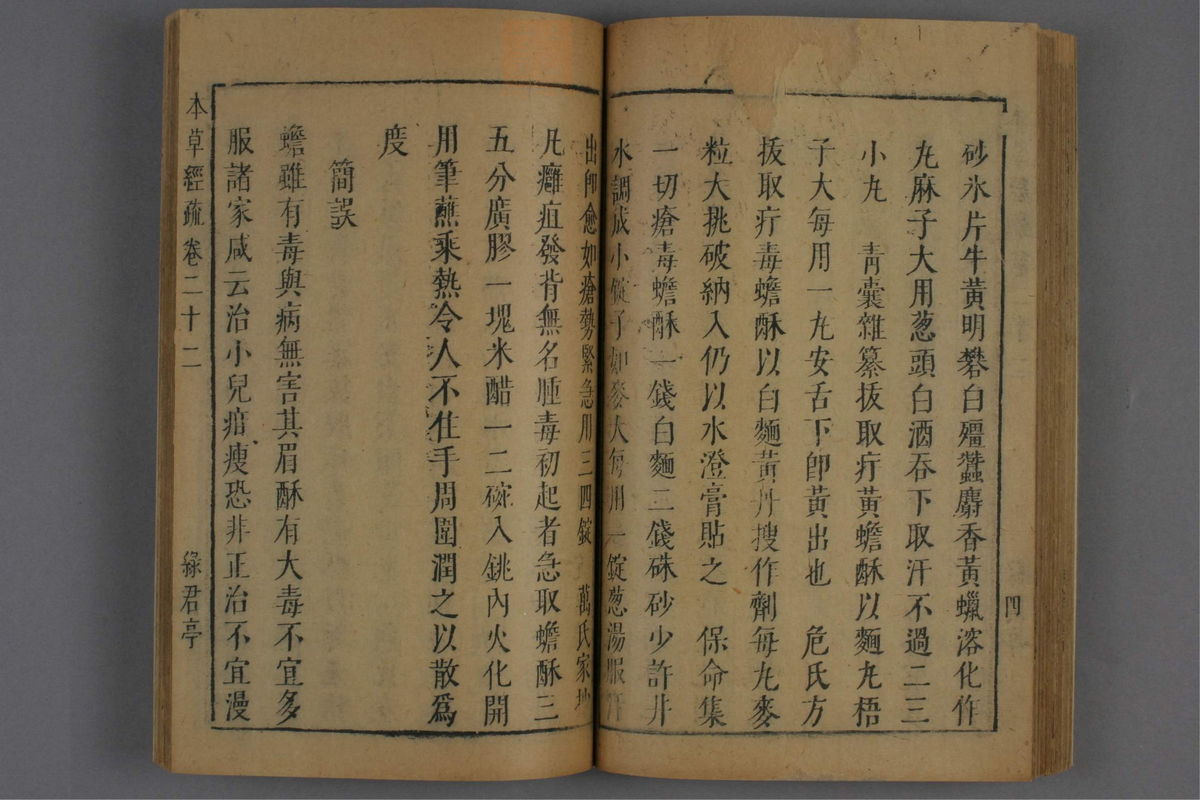 砂氷片牛黃明礬白殭蠶麝香黃蠟溶化作
丸麻子大用葱頭白酒吞下取汗不過二三
小丸　靑囊雜纂拔取疔黃蟾酥以麵丸梧
子大每用一丸安舌下卽黃出也　危氏方
拔取疔毒蟾酥以白麵黃丹搜作劑每丸麥
粒大挑破納入仍以水澄膏貼之　保命集
一切瘡毒蟾酥一錢白麵二錢硃砂少許井
水調成小錠子如麥大每用一錠葱湯服汗
出卽愈如瘡勢緊急用三四錠　萬氏家抄
凡癰疽發背無名腫毒初起者急取蟾酥三
五分廣膠一塊米醋一二碗入銚內火化開
用筆蘸乘熱令人不住手周圍潤之以散爲
度
簡誤
蟾雖有毒與病無害其眉酥有大毒不宜多
服諸家咸云治小兒疳瘦恐非正治不宜漫
本草經疏　卷二十二　綠君亭
四